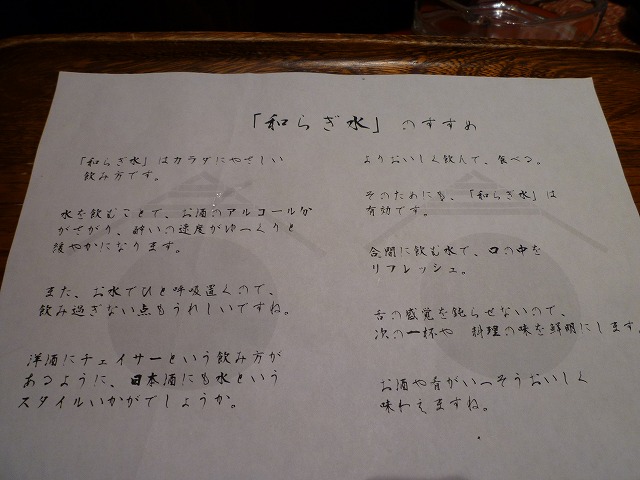 「和らぎ水」のすすめ
「和らぎ水」はカラダにやさしい
飲み方です。
水を飲むことで、お酒のアルコールか
がさがり、酔いの速度がゆっくりと
緩やかになります。
また、お水でひと呼吸置くので、
飲み過ぎない点もうれしいですね。
洋酒にチェイサーという飲み方が
あるように、日本酒にも水という
スタイルいかがでしょうか。
よりおいしく飲んで、食べる。
そのためにも、「和らぎ水」は
有効です。
合間に飲む水で、口の中を
リフレッシュ。
舌の感覚を鈍らせないので、
次の一杯や 料理の味を鮮明にします。
お酒や肴がいっそうおいしく
味わえますね。